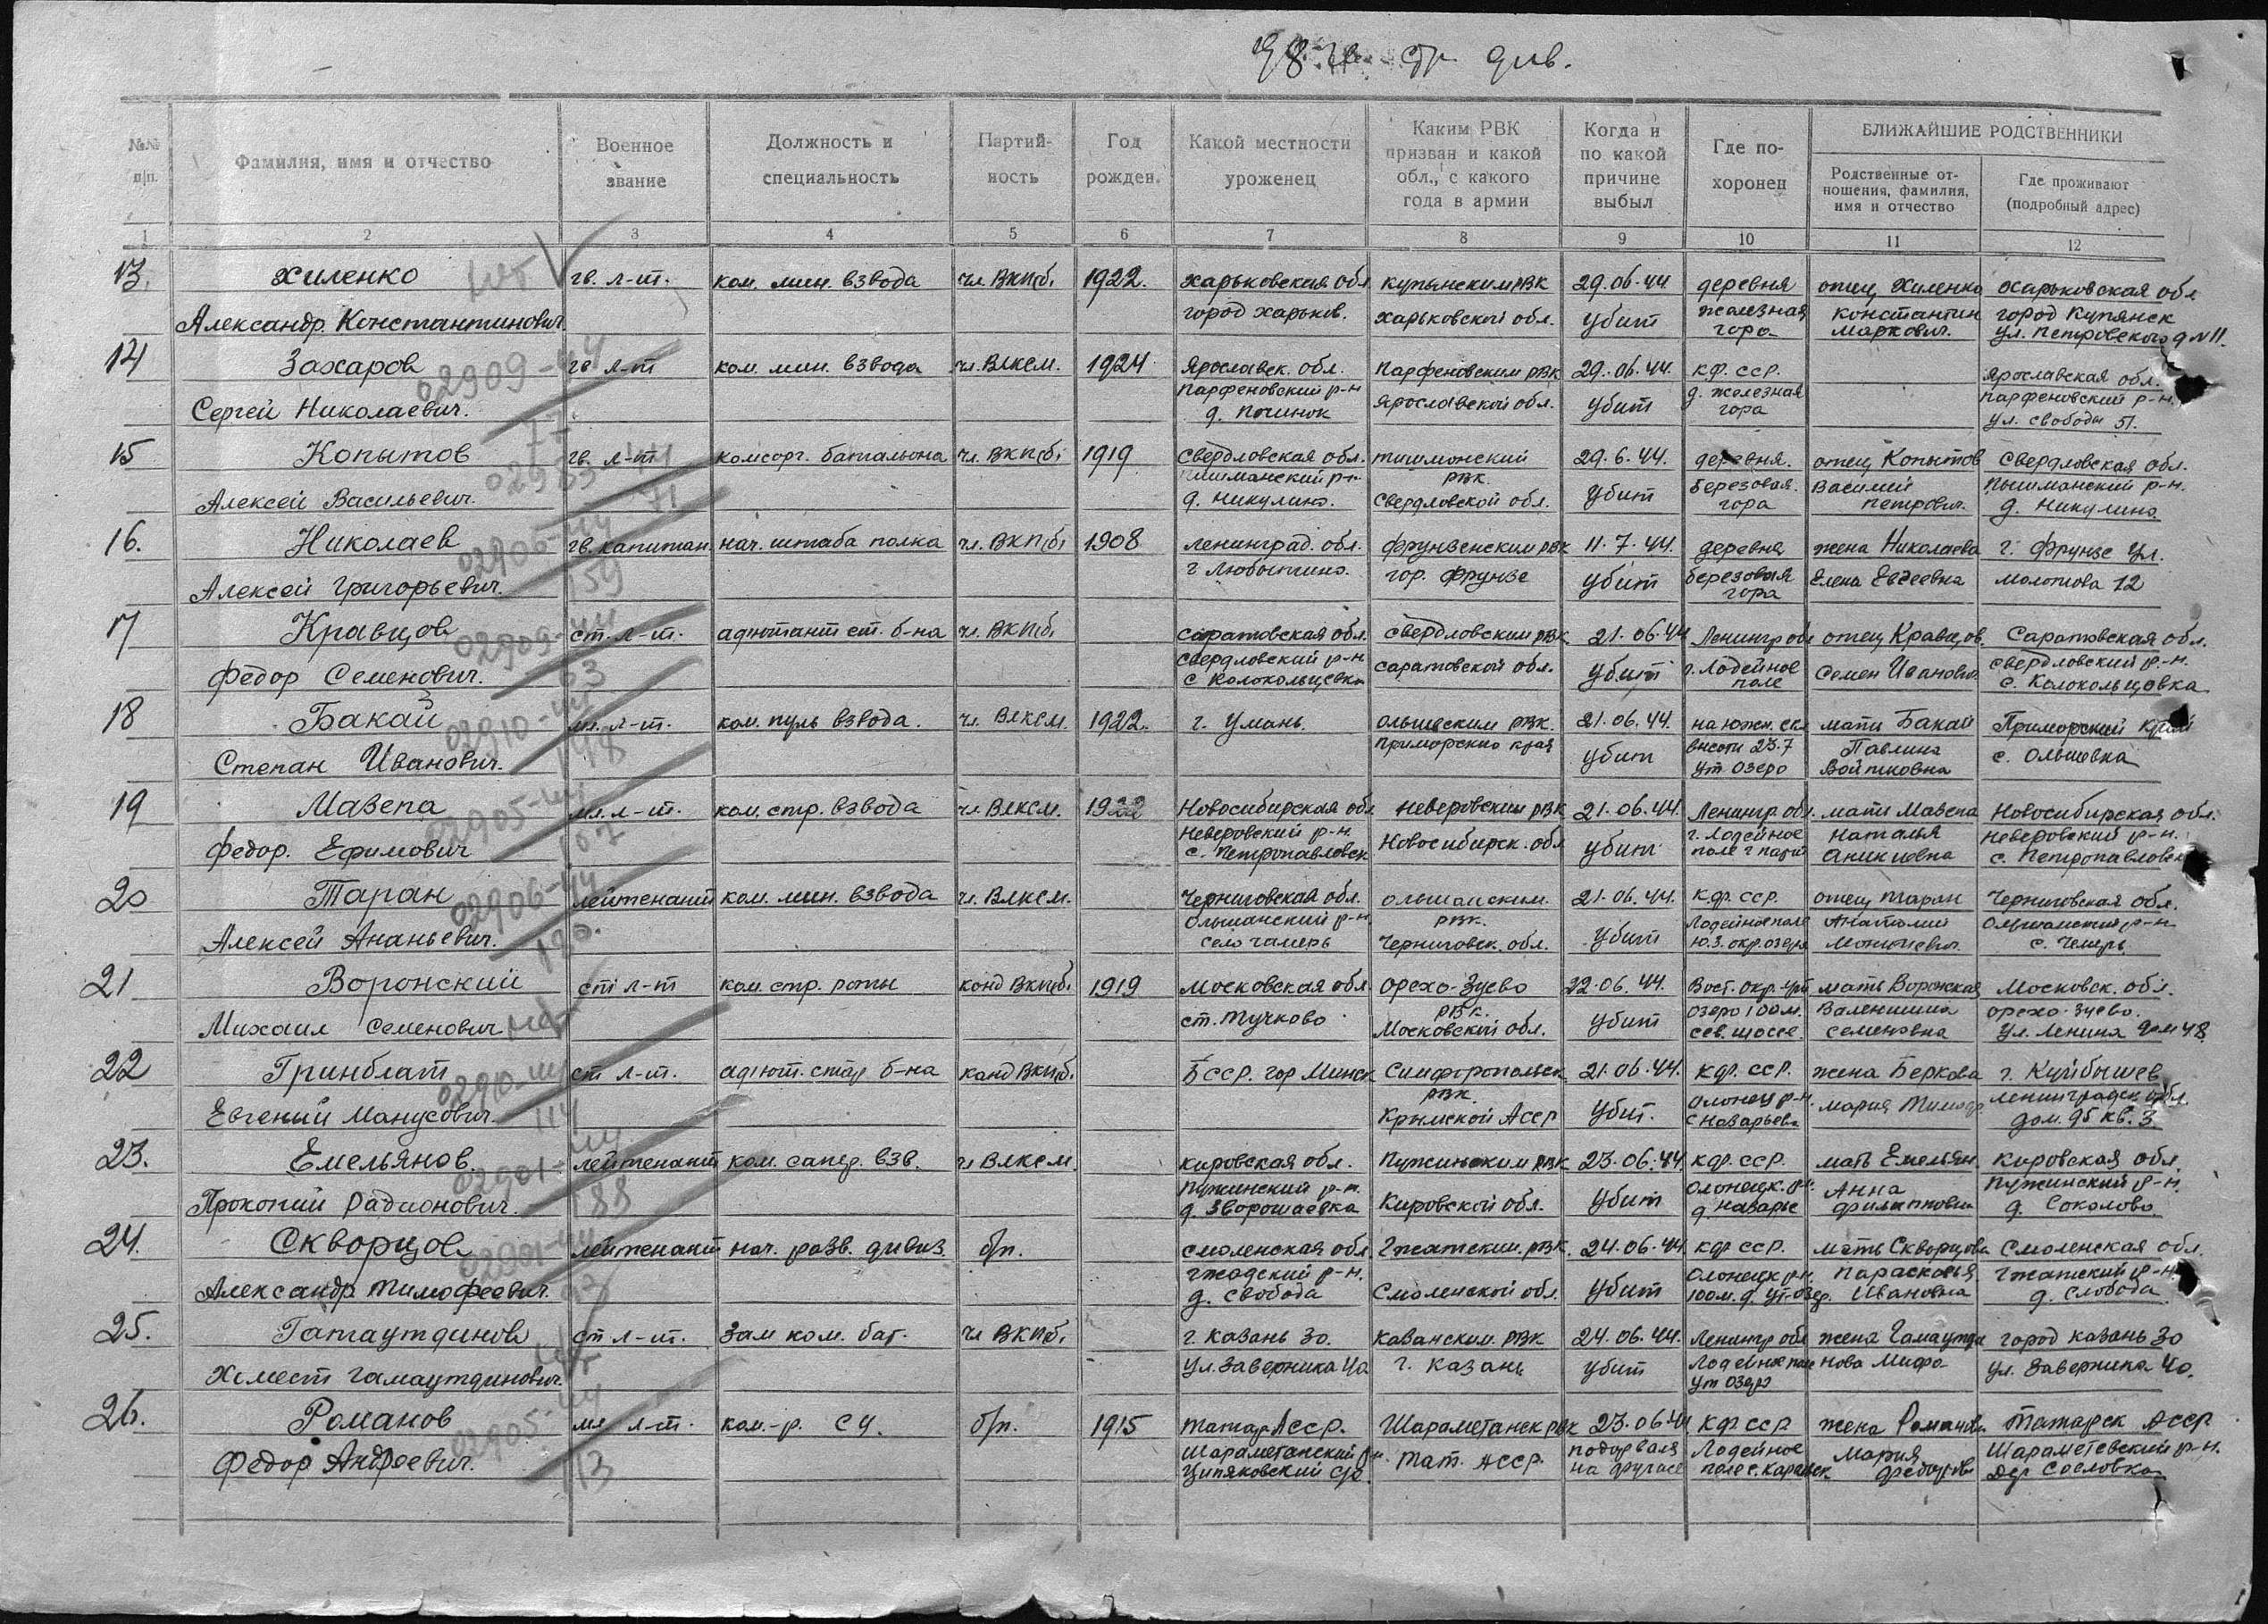 98 гв. стр див.
№№ п/п.
Фамилия, имя и отчество
Военное звание
Должность и специальность
Партий-ность
Год рожден.
Какой местности уроженец
Каким РВК призван и какой обл., с какого года в армии
Когда и по какой причине выбыл
Где по-хоронен
БЛИЖАЙШИЕ РОДСТВЕННИКИ
Родственные от-ношения, фамилия, имя и отчество
Где проживают (подробный адрес)
1 2 3 4 5 6 7 8 9 10 11 12
13. Хиленко гв. л-т. ком. мин. взвода чл. ВКП(б) 1922. Харьковская обл купянским РВК 29.06.44 деревня отец Хиленко Харьковская обл
Александр Константинович город Харьков. Харьковской обл. убит железная гора константин маркович. город Купянск ул. Петровского д №11.
14 Захаров гв л-т ком. мин. взвода чл. Влксм. 1924 Ярославск. обл. Парфеновским рвк 29.06.44. кф. сср. Ярославская обл.
02909-44
Сергей Николаевич. Парфеновский р-н д. Починок Ярославской обл. убит д. железная гора Парфеновский р-н. ул. свободы 51.
77
15 Копытов гв. л-т комсорг. батальона чл. ВКП(б) 1919 Свердловская обл. 29.6.44. деревня. отец Копытов Свердловская обл.
Алексей Васильевич. д. Никулино. рвк. Свердловской обл. убит Березовая. гора Василий Петрович. Пышманский р-н. д. Никулино.
71
16. Николаев гв. капитан нач. штаба полка чл. ВКП(б) 1908 Ленинград. обл. Фрунзенским рвк 11.7.44. деревня жена Николаева г. Фрунзе ул.
02906-44
Алексей Григорьевич. гор. Фрунзе убит березовая гора Елена Евсеевна молотова 12
159
17 Кравцов ст. л-т. адютант ст. б-на чл. ВКП(б) Саратовская обл. Свердловским рвк 21.06.44 Ленингр обл отец Кравцов. Саратовская обл.
02909-44
Федор Семенович. Свердловский р-н с Колокольцевка Саратовской обл. убит г. Лодейное поле Семен Иванович. Свердловский р-н. с. Колокольцовка
63
18 Бакай мл. л-т. ком. пуль взвода. чл. Влксм 1922. г. Умань. рвк. 21.06.44. на южн. скл мать Бакай Приморский край
02910-44
Степан Иванович. Приморского края убит высоты 23.7 ут озеро Павлина Войтковна с. Ольшевка
148
19 Мазепа мл. л-т. ком. стр. взвода чл Влксм. 1922 Новосибирская обл неверовским рвк 21.06.44. Ленингр. обл. мать Мазепа Новосибирская обл.
02905-44
Федор. Ефимович Неверовский р-н. с. Петропавловск Новосибирск. обл убит г. Лодейное поле наталья Аникиевна Неверовский р-н. с. Петропавловск
107
20 Таран лейтенант ком. мин. взвода чл. Влксм. Черниговская обл. ольшанским 21.06.44. кф. сср. отец Таран Черниговская обл.
02906-44
Алексей Ананьевич. Ольшанский р-н. село рвк. Черниговск. обл. убит Лодейное поле Ю.З. окр. озера Анатолий Ольшанский р-н с. Чемерь
21 Воронский ст л-т ком. стр. роты канд ВКП(б) 1919 Московская обл Орехо-Зуево 22.06.44. Вост. окр. ут мать Воронская Московск. обл.
Михаил Семенович нет ст. Тучково рвк. Московской обл. убит озеро 100м. сев. шоссе Валентина семеновна Орехо-Зуево. ул. Ленина дом 48.
22 Гринблат ст л-т. адют. стар б-на канд ВКП(б) БССР. гор Минск Симферопольск 21.06.44. кф. сср. жена Беркова г. Куйбышев
02910-44
Евгений Манусович. рвк. Крымской Асср убит. Олонец р-н. мария ленинградск обл. дом. 95 кв. 3
114
23. Емельянов. лейтенант ком. сапер. взв. чл Влксм кировская обл. Пужинским рвк 23.06.44. кф. сср. мать Емельян. Кировская обл.
02901-44
Прокопий Радионович. Пужинский р-н. Кировской обл. убит Олонецк. р-н. д. Анна филипповна Пужинский р-н. д. Соколово.
188
24. Скворцов лейтенант нач. разв. дивиз. б/п. смоленская обл Гжатским. рвк. 24.06.44 кф сср. мать Скворцова Смоленская обл.
Александр Тимофеевич. Гжадский р-н. д. Свобода Смоленской обл. убит Олонецк р-н. 100м. д. ут-озер. Парасковья Ивановна Гжатский р-н. д. Слобода
25. Гатаутдинов ст л-т. Зам ком. бат. чл ВКП(б) г. казань 30. казанским. рвк 24.06.44. Ленингр обл жена Гатаутди город казань 30
гамаутдинович. нет ул. Заверника 40 г. Казань убит Лодейное поле ут озеро нова ул. Заверника 40.
26. Романов мл л-т. ком-р. СУ. б/п. 1915 татар Асср. Шараметанск рвк 23.06.44 кф сср жена Романова Татарск Асср
02905-44
Федор Андреевич. Шараметанский р-н. Ципяковский с/с. Тат. Асср. подорвался на Лодейное поле с. мария Шараметевский р-н. дер Сословка
113